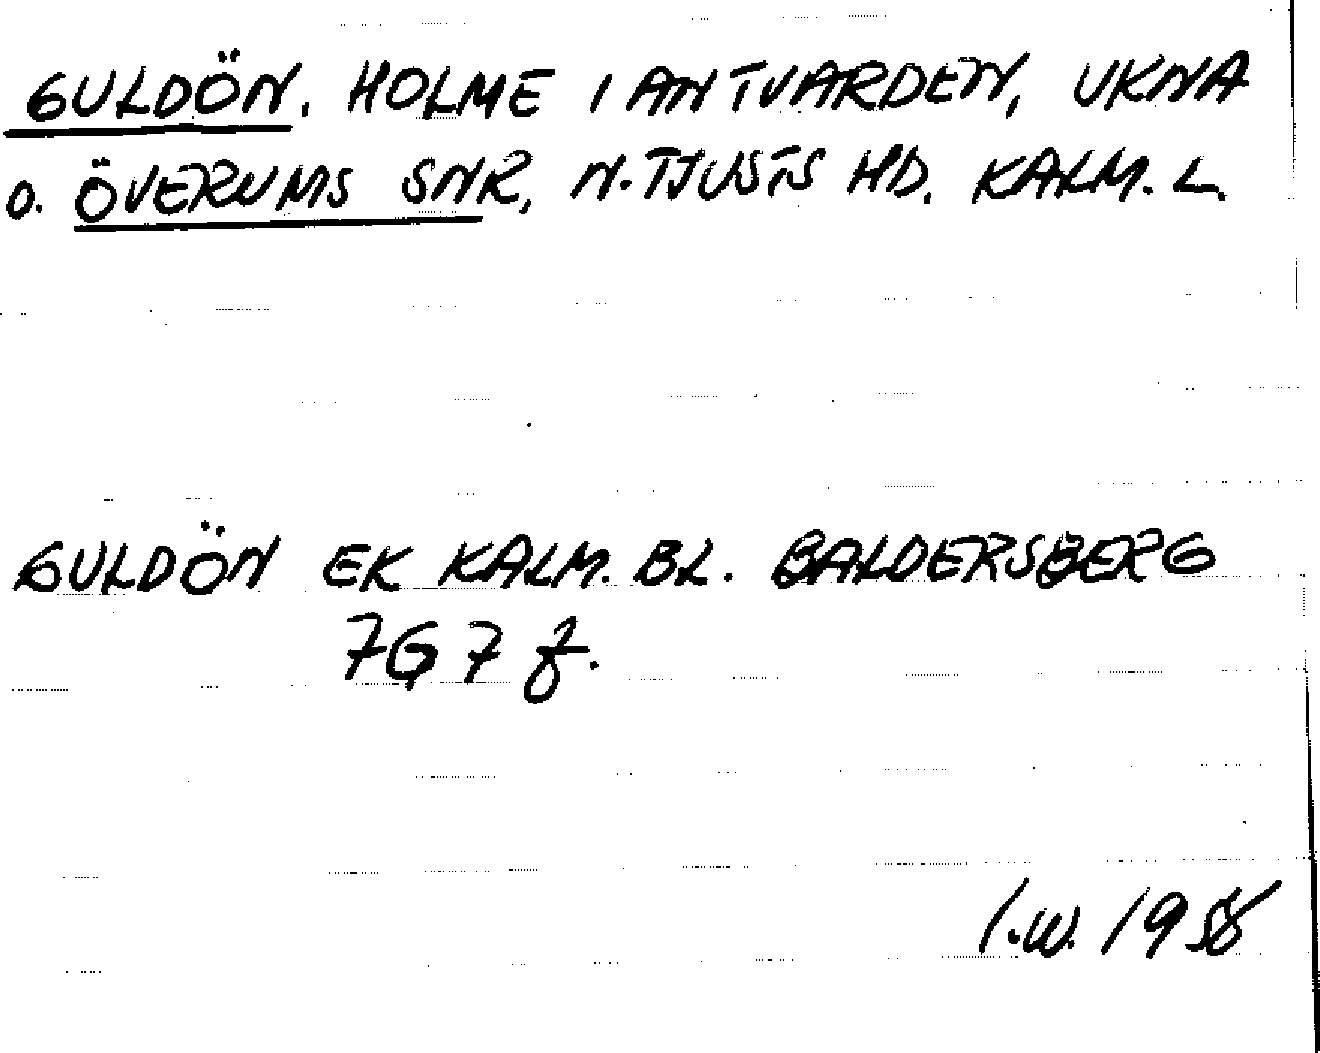 GULDÖN. HOLME I ANTVARDEN, UKNA
O. ÖVERUMS SNR, N. TJUSTS HD. KALM. L.
GULDÖN EK KALM. BL. BALDERSBERG
7G 7 f.
I.W. 1958